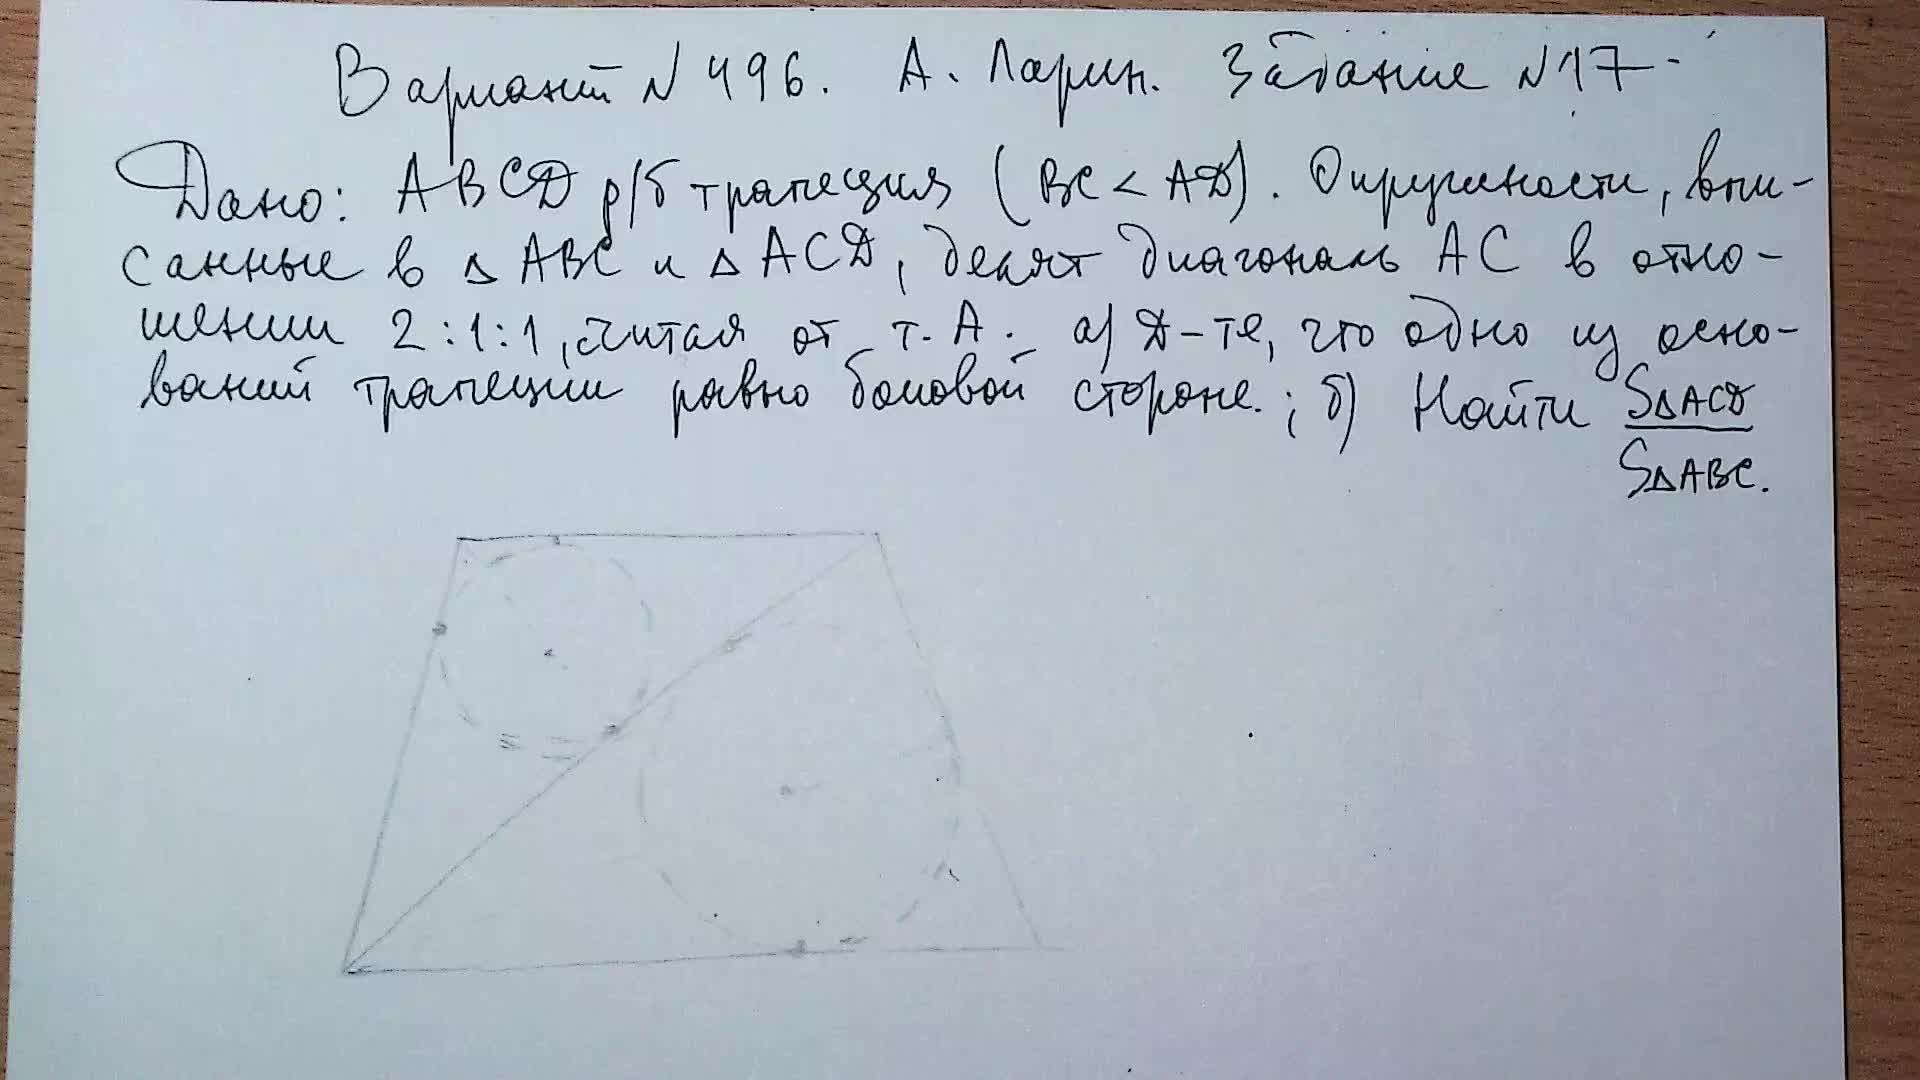 Вариант N 496. А. Ларин. Задание N17.
Дано: ABCD р/б трапеция (BC < AD). Окружности, впи-
санные в △ ABC и △ ACD, делят диагональ AC в отно-
шении 2:1:1, считая от т. А. а) Д-те, что одно из осно-
ваний трапеции равно боковой стороне.; б) Найти S△ACD
S△ABC.